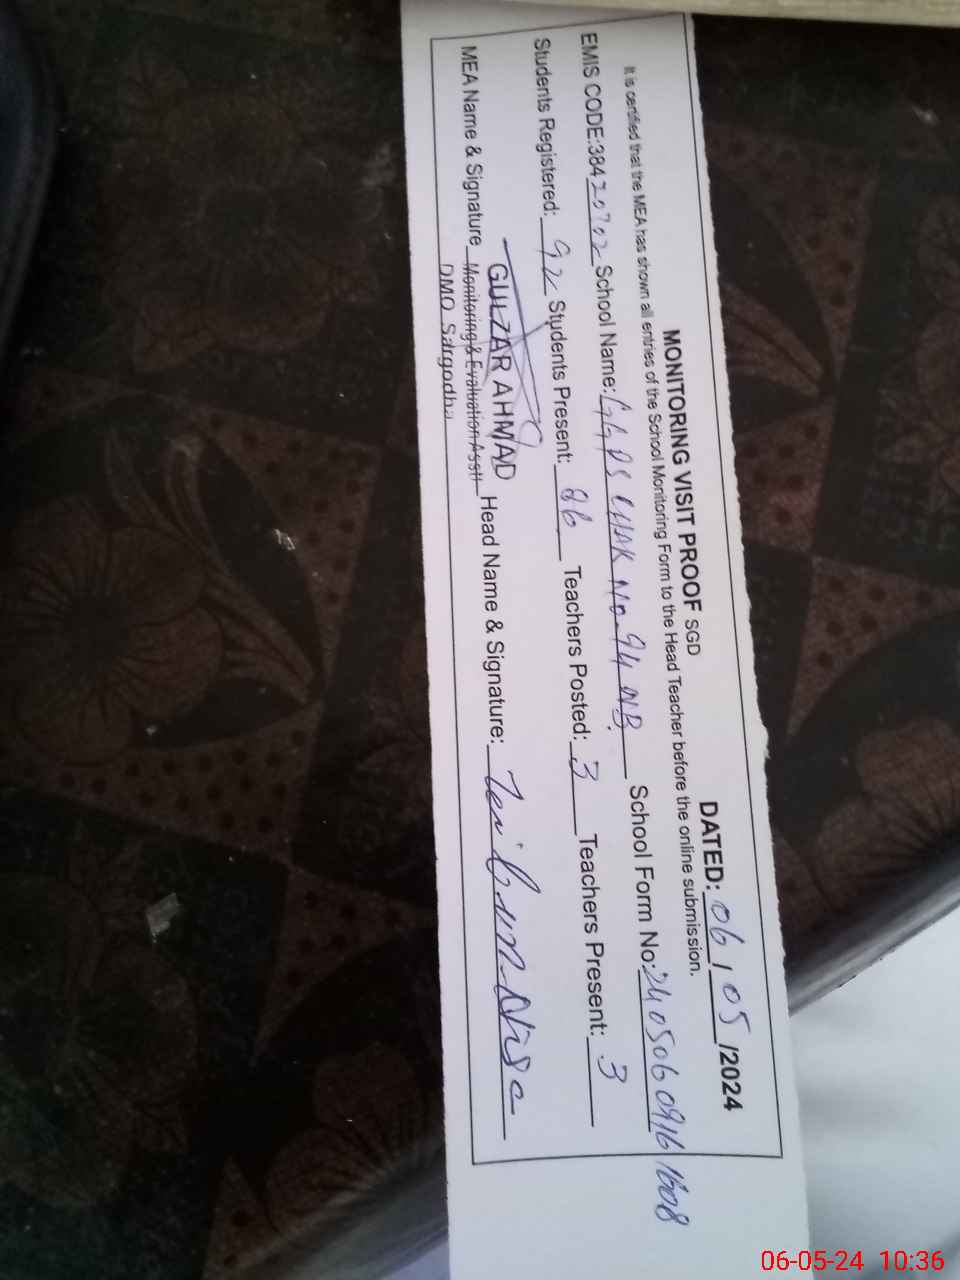 MONITORING VISIT PROOF SGD DATED: 06 / 05 /2024
It is certified that the MEA has shown all entries of the School Monitoring Form to the Head Teacher before the online submission.
EMIS CODE:38420702 School Name: GGPS CHAK No. 94 NB School Form No: 24050609161608
Students Registered: 92 Students Present: 86 Teachers Posted: 3 Teachers Present: 3
MEA Name & Signature GULZAR AHMAD Head Name & Signature: Zaib un Nisa
Monitoring & Evaluation Asstt
DMO Sargodha
06-05-24 10:36